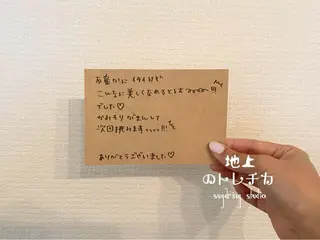 石産かに イタイけど
こんなに美しくなれるとは
でした♡
かみそり がまんして
次回挑みます〜〜〜!!!
ありがとうございました♡
地上
のトレチカ
sugaring studio